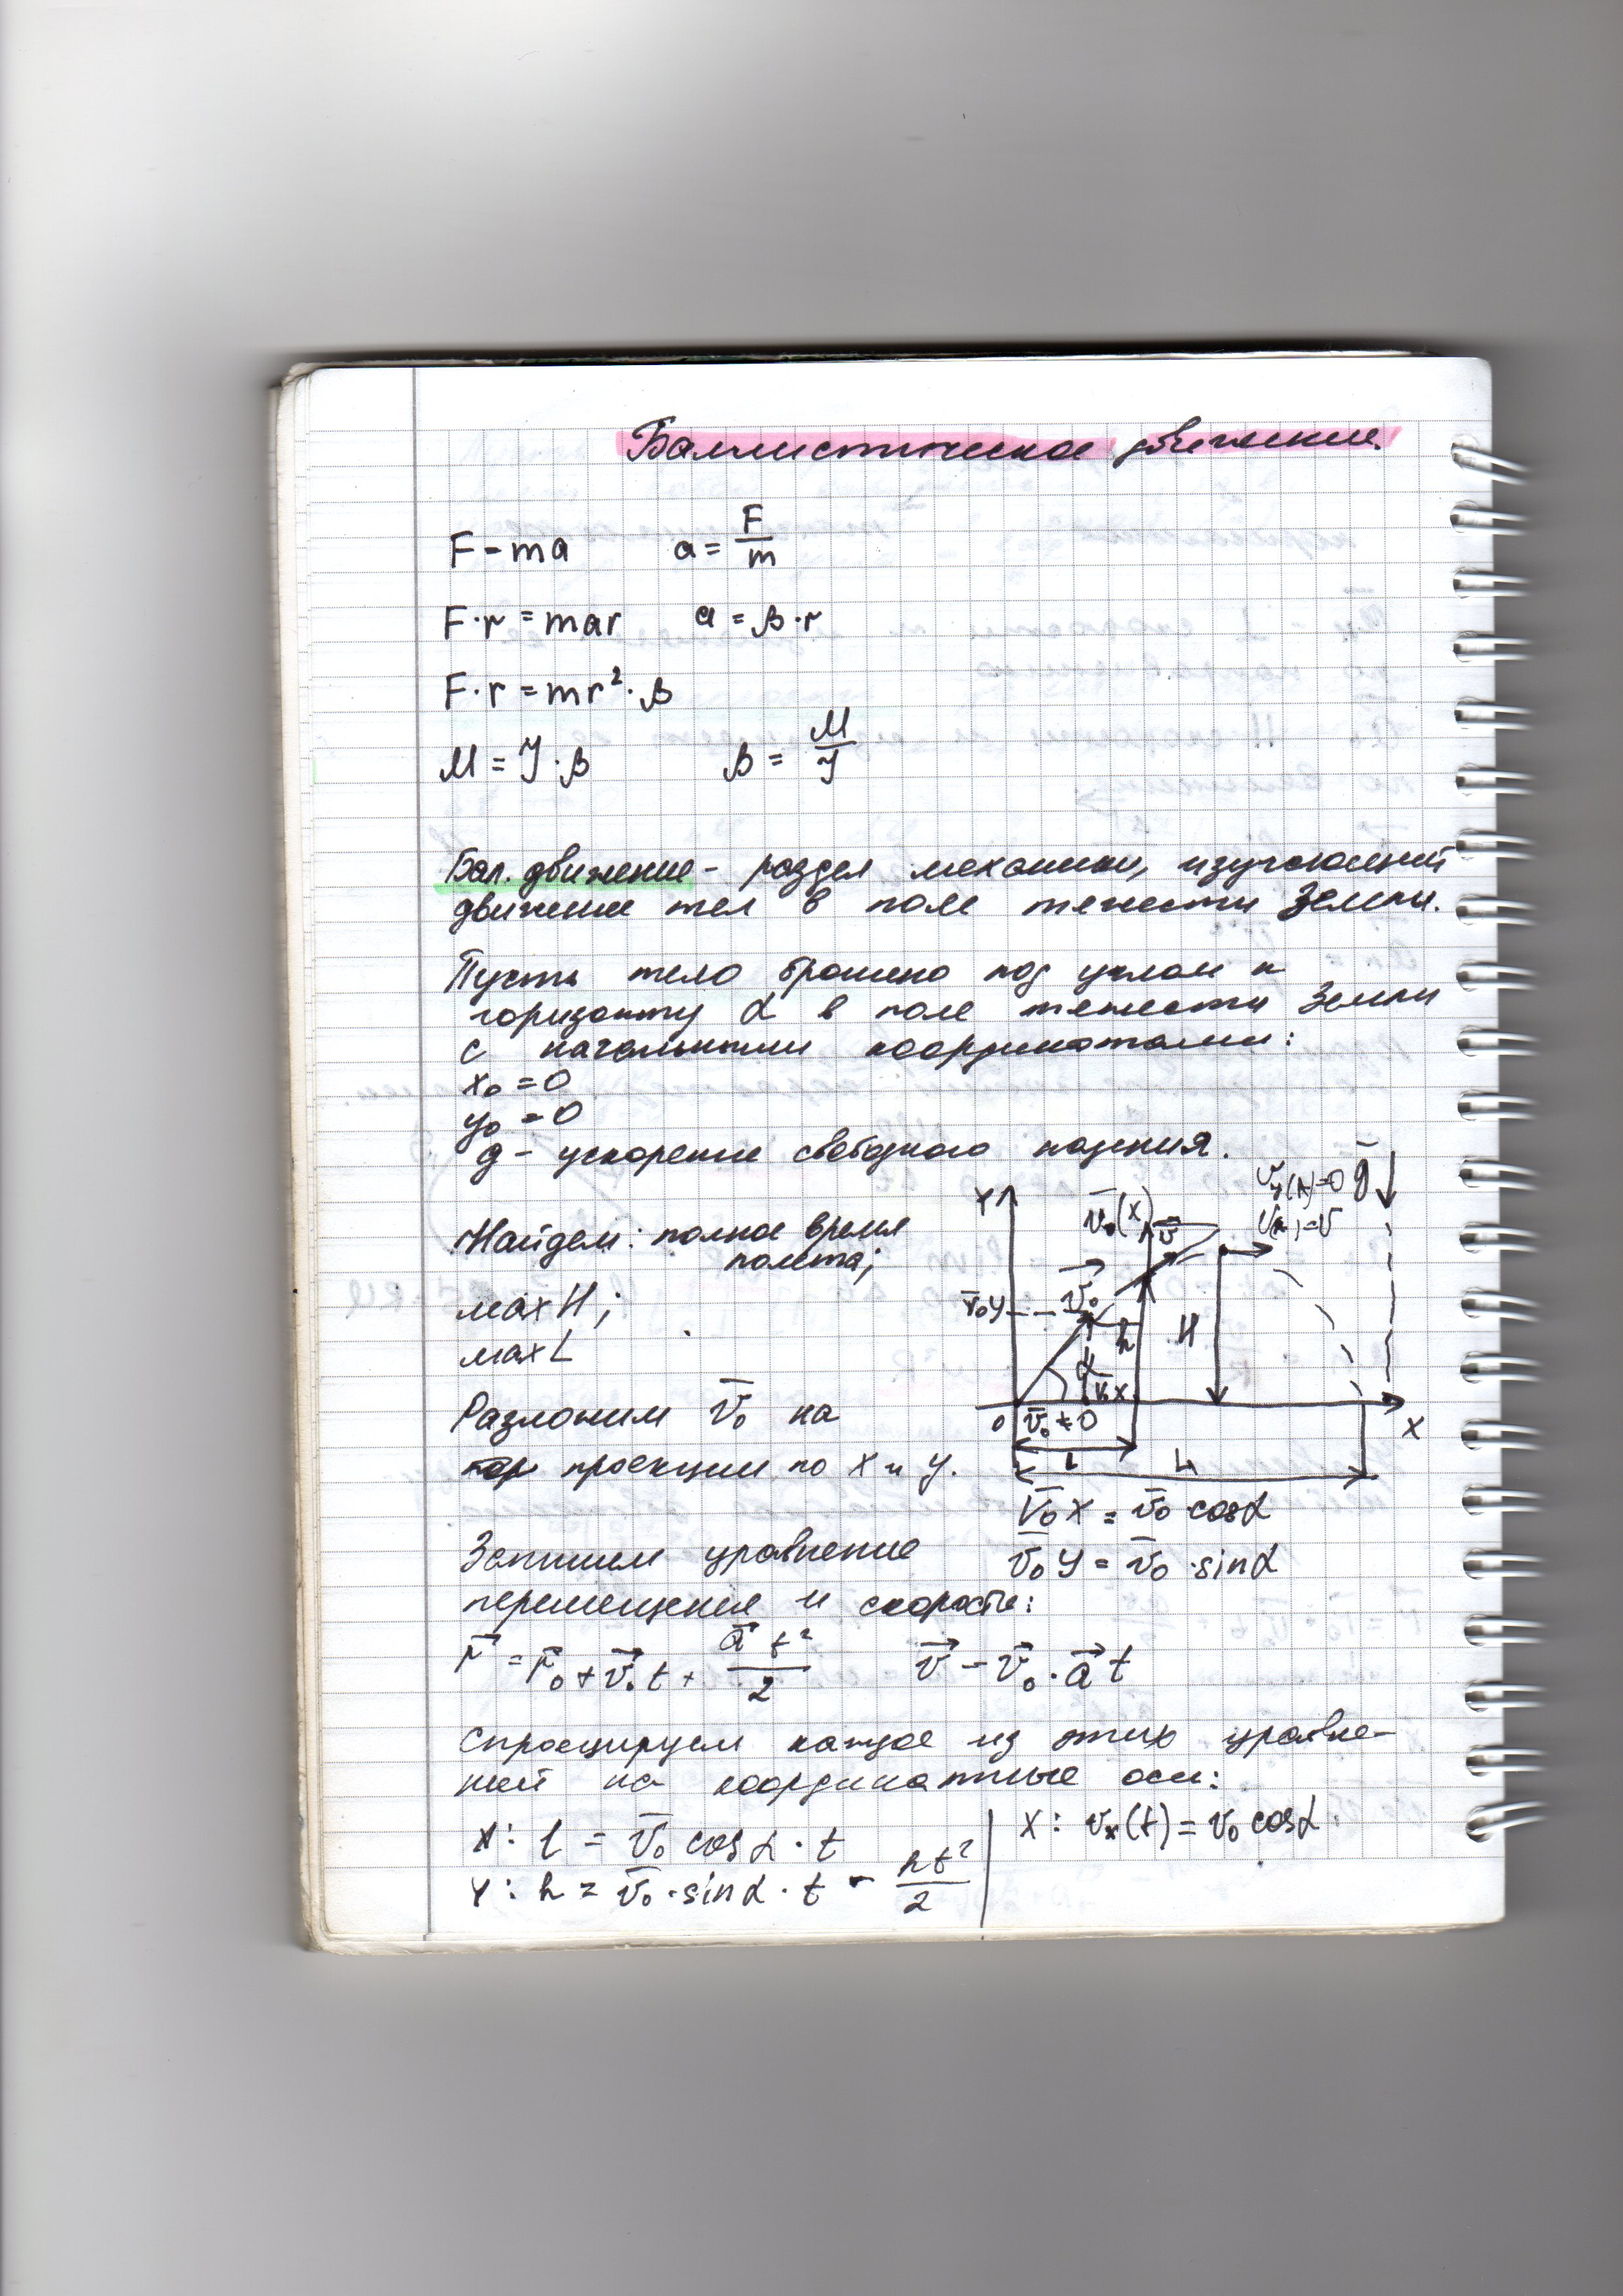 Баллистическое движение.
F = ma a = F/m
F·r = mar a = β·r
F·r = mr²·β
M = J·β β = M/J
Бал. движение - раздел механики, изучающий
движение тел в поле тяжести Земли.
Пусть тело брошено под углом к
горизонту α в поле тяжести Земли
с начальными координатами:
x₀ = 0
y₀ = 0
g - ускорение свободного падения.
Найдем: полное время
полета;
max H;
max L
Разложим v̄₀ на
проекции по x и y.
Y
v̄₀(x)
v̄
v_y(A)=0
ḡ
v̄₀y
v⃗₀
h
H
α
v̄₀x
0
v̄₀ ≠ 0
X
l
L
v̄₀x = v̄₀ cosα
v̄₀y = v̄₀ · sinα
Запишем уравнение
перемещения и скорости:
r⃗ = r⃗₀ + v⃗₀t + a⃗t²/2 v⃗ = v⃗₀ · a⃗t
Спроецируем каждое из этих уравне-
ний на координатные оси:
X: l = v̄₀ cosα · t
Y: h = v̄₀ · sinα · t - ht²/2
X: vₓ(t) = v₀ cosα.